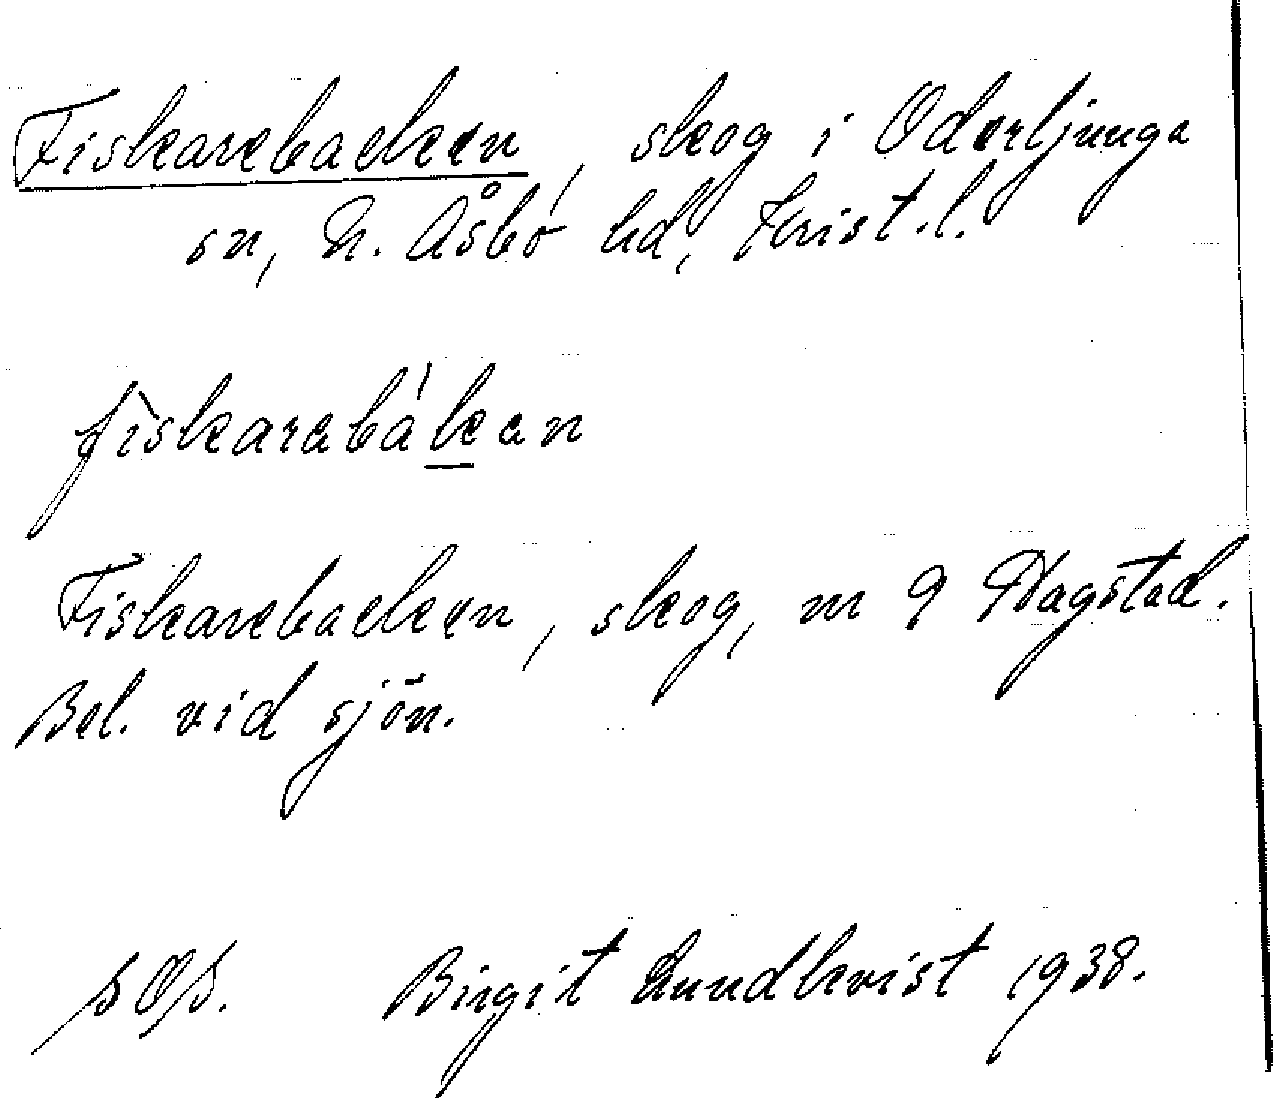 Fiskarebacken, skog i Oderljunga
sn, N. Åsbo hd, Krist. l.
fìskarabákan
Fiskarebacken, skog, m 9 Hagstad.
Bel. vid sjön.
SOS. Birgit Lundkvist 1938.